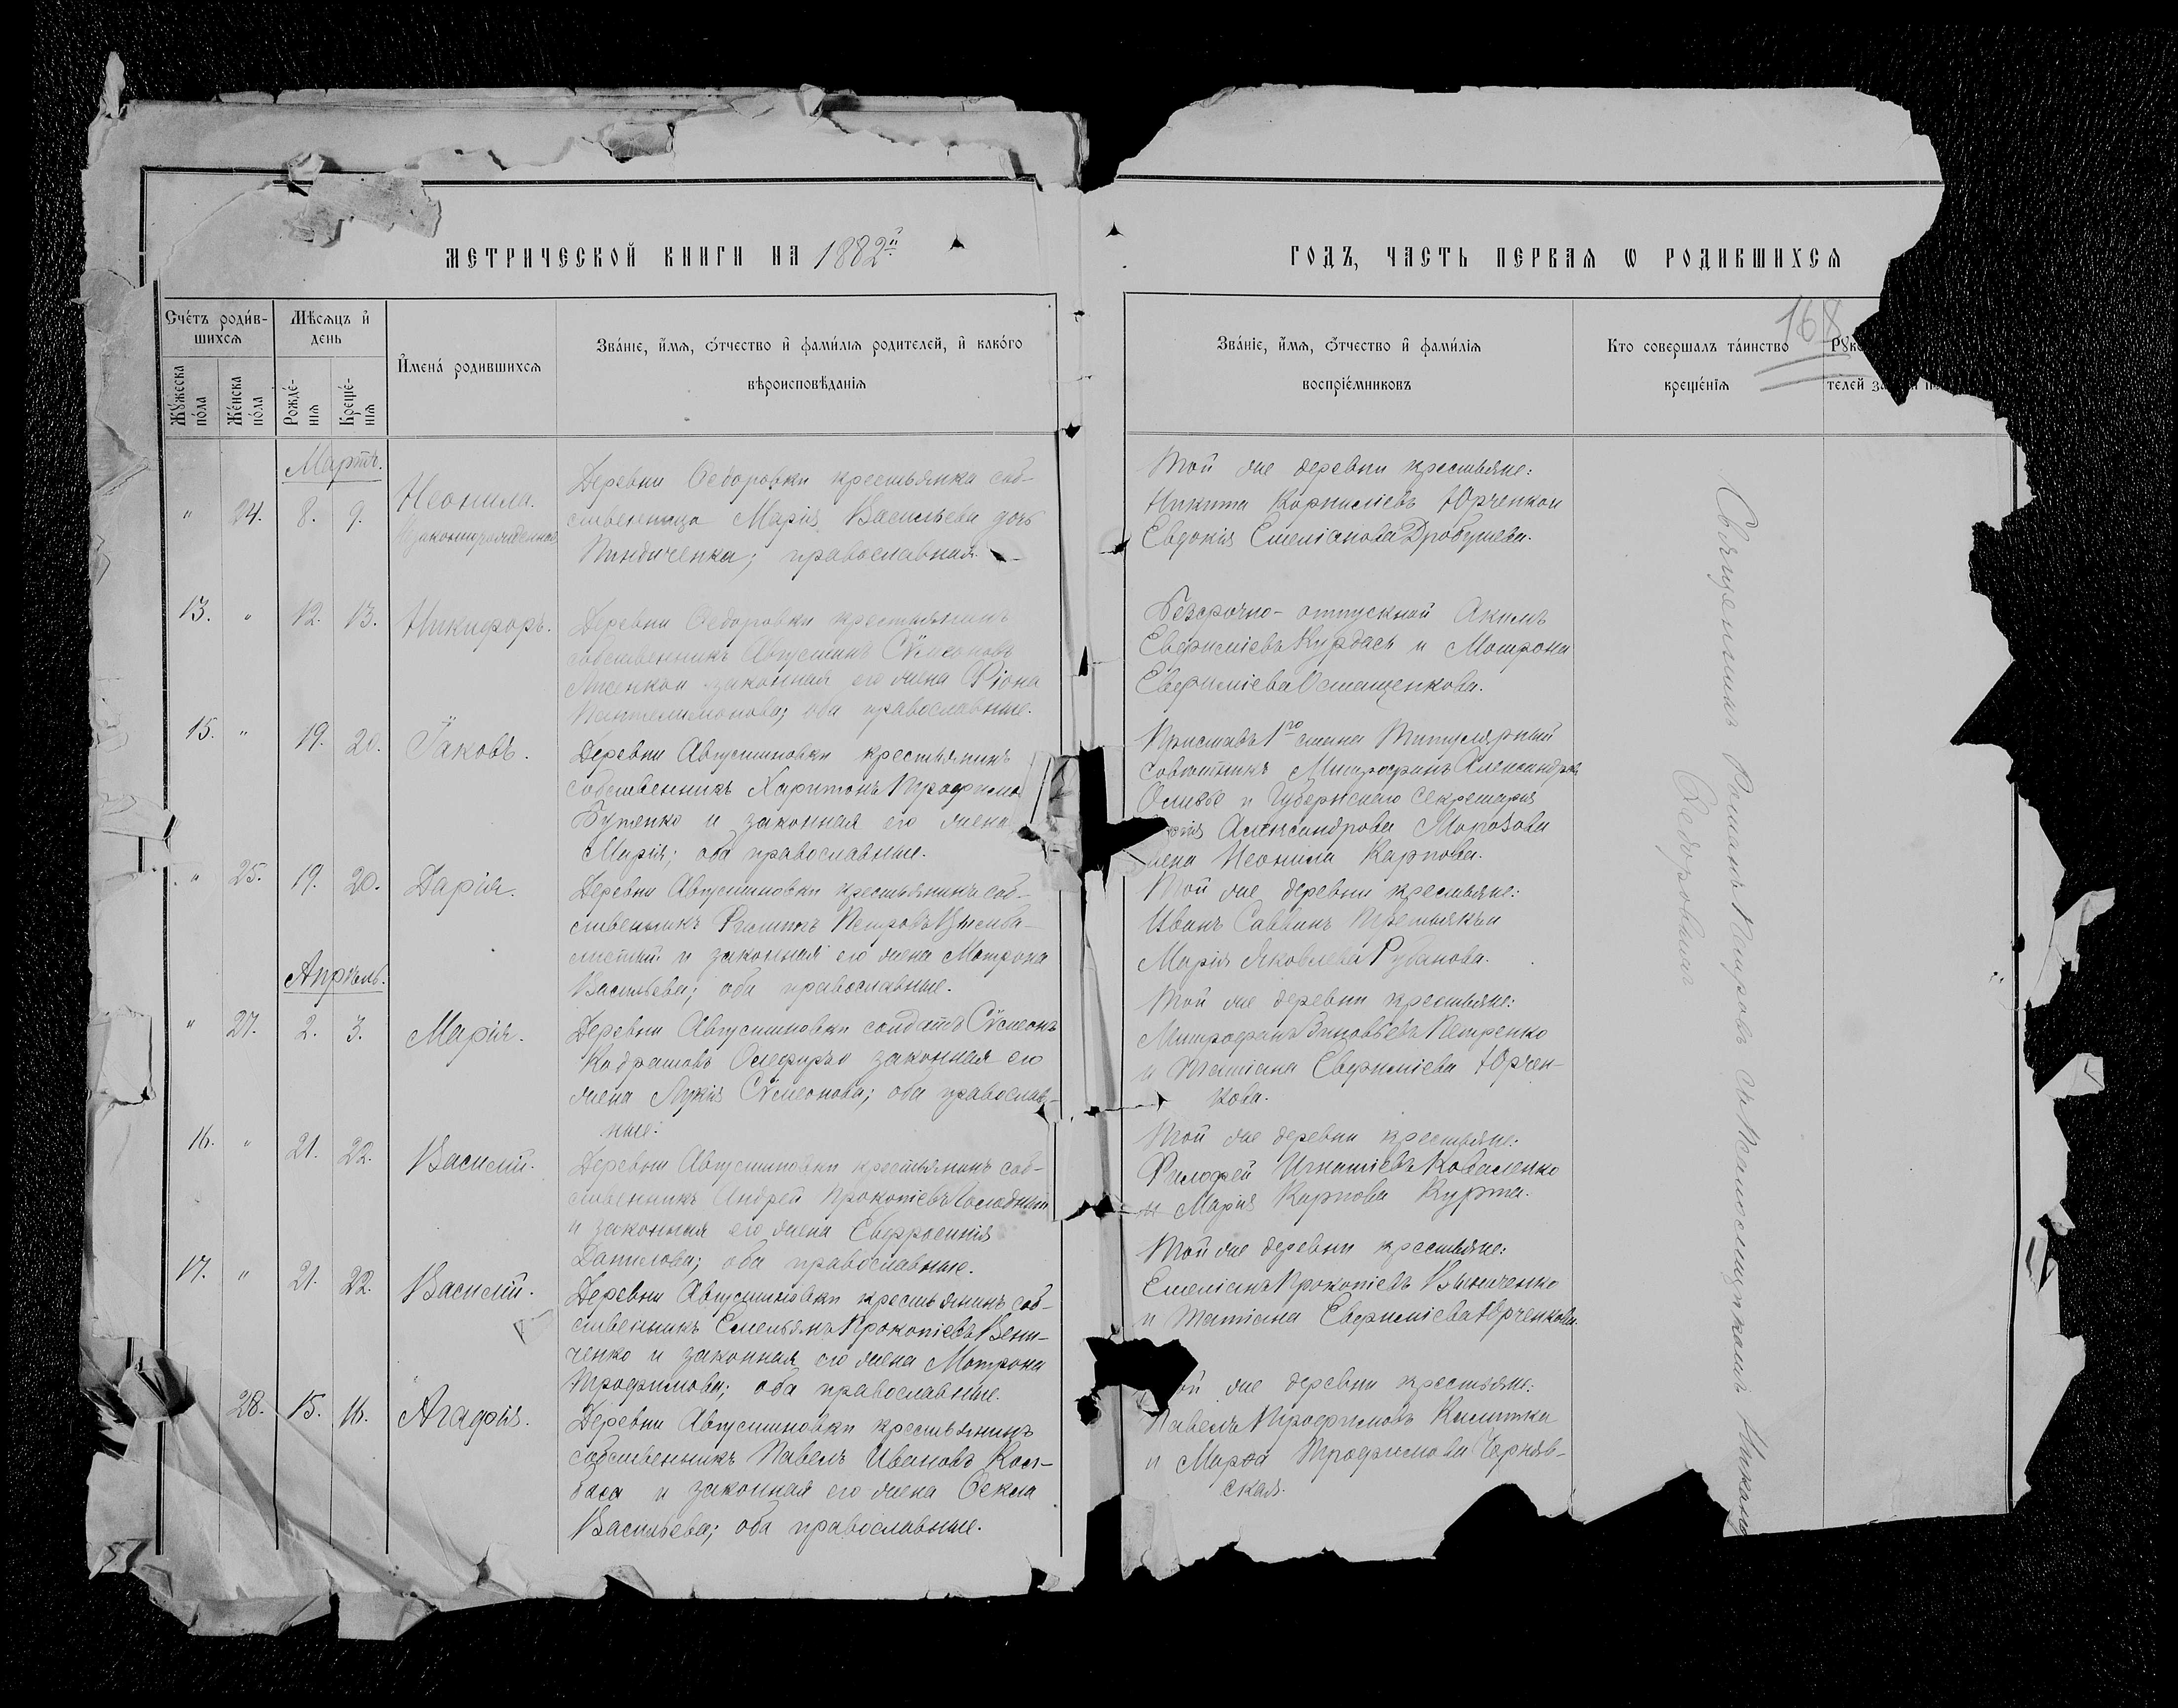 МЕТРИЧЕСКОЙ КНИГИ НА 1882й
ГОДЪ, ЧАСТЬ ПЕРВАЯ Ѡ РОДИВШИХСЯ
168
Счетъ родив-
шихся
Мѣсяцъ и
день
Мужеска
пола
Женска
пола
Рожде-
нія
Креще-
нія
Имена родившихся
Званіе, имя, отчество и фамилія родителей, и какого
вѣроисповѣданія
Званіе, имя, отчество и фамилія
воспріемниковъ
Кто совершалъ таинство
крещенія
телей
Мартъ.
" 24. 8. 9. Неонила.
Незаконнорожденная
Деревни Ѳедоровки крестьянка соб-
ственница Марія Васильева дочь
православная.
Той же деревни крестьяне:
Никита Корниліевъ Юрченко и
Евдокія Емеліанова
13. " 12. 13. Никифоръ.
Деревни Ѳедоровки крестьянинъ
собственникъ Августинъ Сѵмеоновъ
Лисенко и законная его жена
Пантелимонова; оба православные.
Безсрочно-отпускной Акимъ
Евфиміевъ Курдасъ и Мотрона
Евфиміева Осташенкова.
15. " 19. 20. Іаковъ.
Деревни Августиновки крестьянинъ
собственникъ Харитонъ Трофимо
Бутенко и законная его жена
Марія; оба православные.
Приставъ 1го стана Титулярный
Совѣтникъ Митрофанъ Александров
и Губернскаго Секретаря
Александрова Морозова
жена Неонила Карпова.
" 25. 19. 20. Дарія.
Деревни Августиновки крестьянинъ соб-
ственникъ Филиппъ Петровъ
и законная его жена Мотрона
Васильева; оба православные.
Той же деревни крестьяне:
Иванъ Саввинъ Третьякъ и
Марія Яковлева Рубанова.
Апрѣль.
" 27. 2. 3. Марія.
Деревни Августиновки солдатъ Сѵмеонъ
законная его
жена Лукія Сѵмеонова; оба православ-
ные.
Той же деревни крестьяне:
Митрофанъ Зиновьевъ Петренко
и Татіана Евфиміева Юрчен-
кова.
16. " 21. 22. Василій.
Деревни Августиновки крестьянинъ соб-
ственникъ Андрей Прокопіевъ
и законная его жена Евфросинія
Данилова; оба православные.
Той же деревни крестьяне:
Филофей Игнатіевъ Коваленко
и Марія Карпова Курта.
17. " 21. 22. Василій.
Деревни Августиновки крестьянинъ соб-
ственникъ Емельянъ Прокопіевъ Вени-
ченко и законная его жена Мотрона
Трофимова; оба православные.
Той же деревни крестьяне:
Емеліанъ Прокопіевъ
и Татіана Евфиміева Юрченкова.
28. 15. 16. Агафія.
Деревни Августиновки крестьянинъ
собственникъ Павелъ Ивановъ Кол-
баса и законная его жена Ѳекла
Васильева; оба православные.
той же деревни крестьяне:
Павелъ Трофимовъ Калитка
и Марѳа Трофимова Черняв-
ская.
Священникъ Романъ Петровъ съ псаломщикомъ